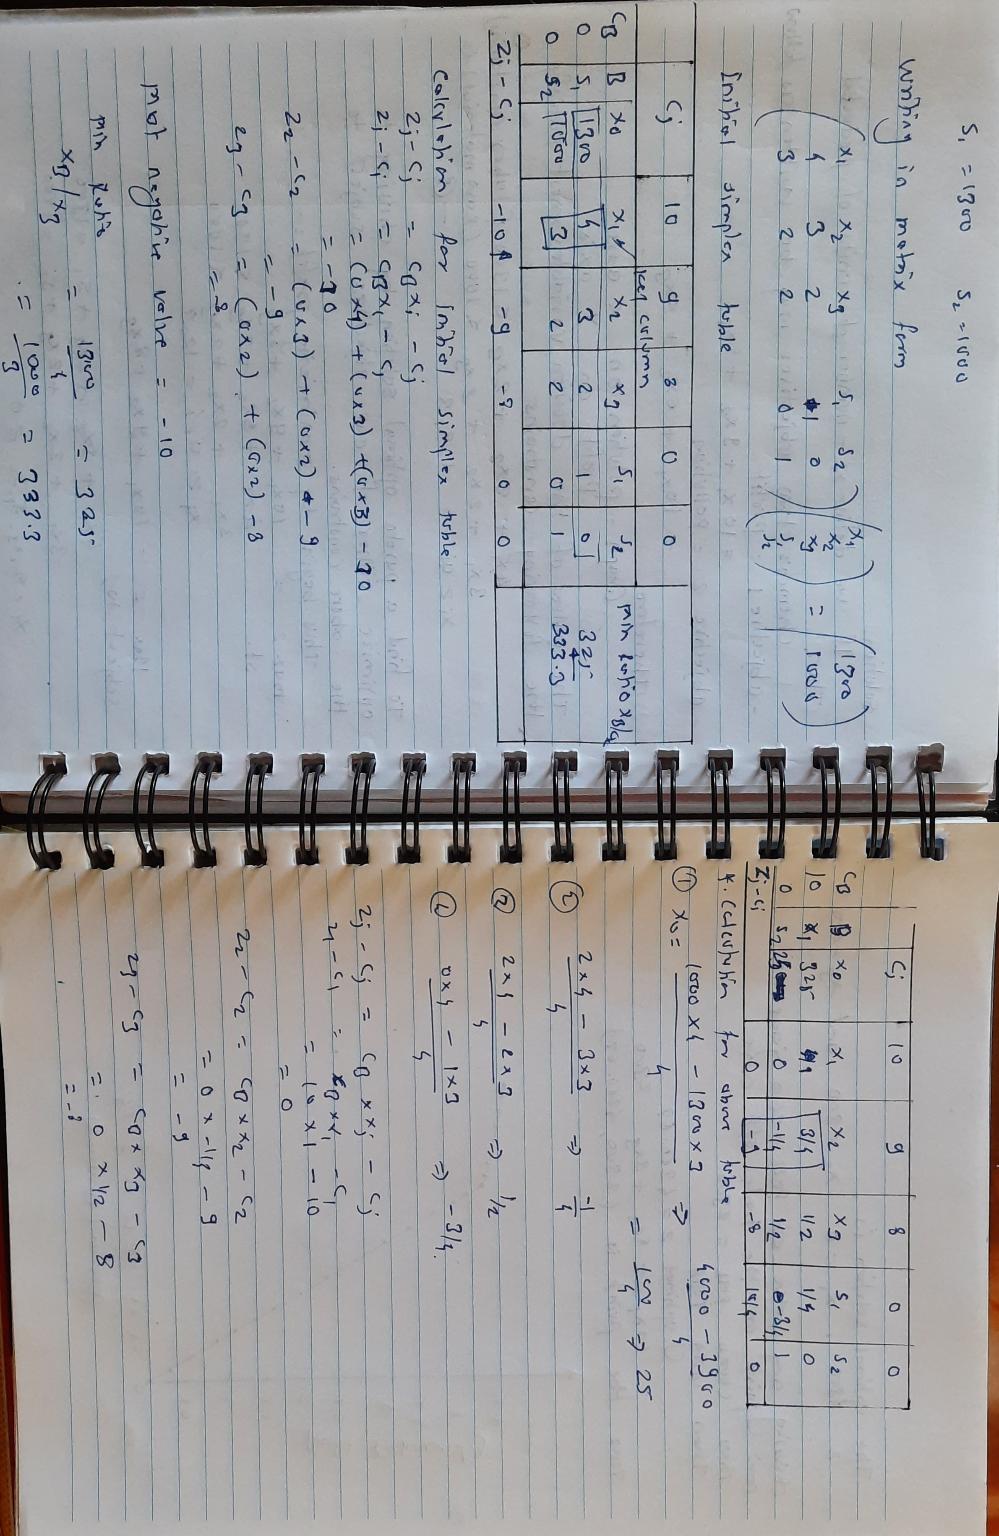 S₁ = 1300 S₂ = 1000
Writing in matrix form
x₁ x₂ x₃ S₁ S₂ x₁
4 3 2 1 0 x₂ 1300
3 2 2 0 1 x₃ = 1000
S₁
S₂
Initial simplex table
Cj 10 9 8 0 0
key column
CB B x₀ x₁ x₂ x₃ S₁ S₂ Min Ratio xB/
0 S₁ 1300 4 3 2 1 0 325
0 S₂ 1000 3 2 2 0 1 333.3
Zj - Cj -10 -9 -8 0 0
Calculation for initial simplex table
Zj - Cj = CBxj - Cj
Zj - Cj = CBx₁ - C₁
= (0x4) + (0x3) + (0x3) - 10
= -10
Z₂ - C₂ = (0x3) + (0x2) - 9
= -9
Z₃ - C₃ = (0x2) + (0x2) - 8
= -8
most negative value = -10
Min Ratio
xB/x3 = 1300/4 = 325
= 1000/3 = 333.3
Cj 10 9 8 0 0
CB B x₀ x₁ x₂ x₃ S₁ S₂
10 x₁ 325 1 3/4 1/2 1/4 0
0 S₂ 25 0 -1/4 1/2 -3/4 1
Zj - Cj 0 -9 -8 10/4 0
*. Calculation for above table
① x₀ = (1000 x 4 - 1300 x 3)/4 ⇒ (4000 - 3900)/4
= 100/4 ⇒ 25
② (2 x 4 - 3 x 3)/4 ⇒ -1/4
③ (2 x 4 - 2 x 3)/4 ⇒ 1/2
④ (0 x 4 - 1 x 3)/4 ⇒ -3/4.
Zj - Cj = CB x xj - Cj
Z₁ - C₁ = CB x x₁ - C₁
= 10 x 1 - 10
= 0
Z₂ - C₂ = CB x x₂ - C₂
= 0 x -1/4 - 9
= -9
Z₃ - C₃ = CB x x₃ - C₃
= 0 x 1/2 - 8
= -8